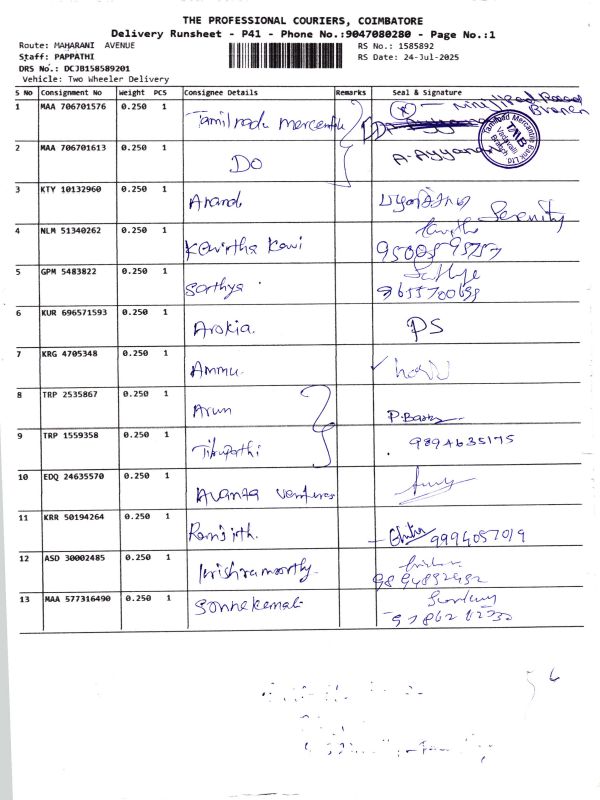 THE PROFESSIONAL COURIERS, COIMBATORE
Delivery Runsheet - P41 - Phone No.:9047080280 - Page No.:1
Route: MAHARANI AVENUE
RS No.: 1585892
Staff: PAPPATHI
RS Date: 24-Jul-2025
DRS No.: DCJB158589201
Vehicle: Two Wheeler Delivery
S No Consignment No Weight PCS Consignee Details Remarks Seal & Signature
1 MAA 706701576 0.250 1 Tamilnadu mercantile
Branch
2 MAA 706701613 0.250 1 DO A. Ayyan
Tamilnad Mercantile Bank Ltd
TMB
Vadavalli
Branch
3 KTY 10132960 0.250 1 Anand Serenity
4 NLM 51340262 0.250 1 Kavirtha Kavi
5 GPM 5483822 0.250 1 Sathya Sathya
9655700695
6 KUR 696571593 0.250 1 Arokia. PS
7 KRG 4705348 0.250 1 Ammu.
8 TRP 2535867 0.250 1 Arun
9 TRP 1559358 0.250 1 Tirupathi 9894635175
10 EDQ 24635570 0.250 1 Avanta ventures
11 KRR 50194264 0.250 1 Ranjith. 9994057019
12 ASD 30002485 0.250 1 Krishnamoorthy.
9894892492
13 MAA 577316490 0.250 1